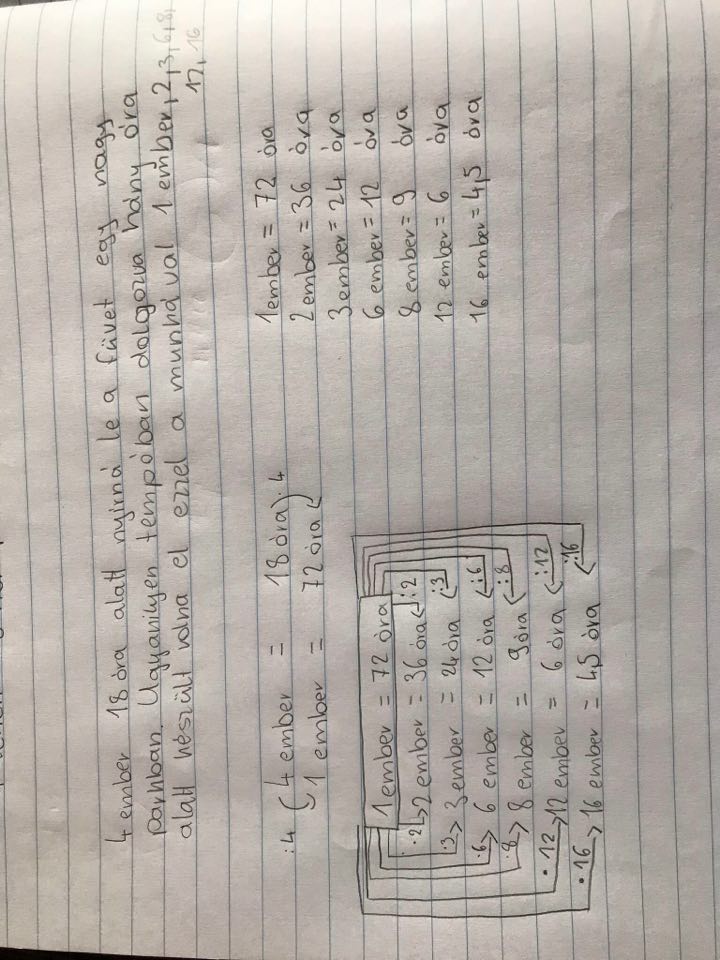 4 ember 18 óra alatt nyírná le a füvet egy nagy
parkban. Ugyanilyen tempóban dolgozva hány óra
alatt készült volna el ezzel a munkával 1 ember, 2, 3, 6, 8,
12, 16
:4 4 ember = 18 óra ·4
1 ember = 72 óra
1 ember = 72 óra
2 ember = 36 óra
3 ember = 24 óra
6 ember = 12 óra
8 ember = 9 óra
12 ember = 6 óra
16 ember = 4,5 óra
1 ember = 72 óra
·2 2 ember = 36 óra :2
·3 3 ember = 24 óra :3
·6 6 ember = 12 óra :6
·8 8 ember = 9 óra :8
·12 12 ember = 6 óra :12
·16 16 ember = 4,5 óra :16